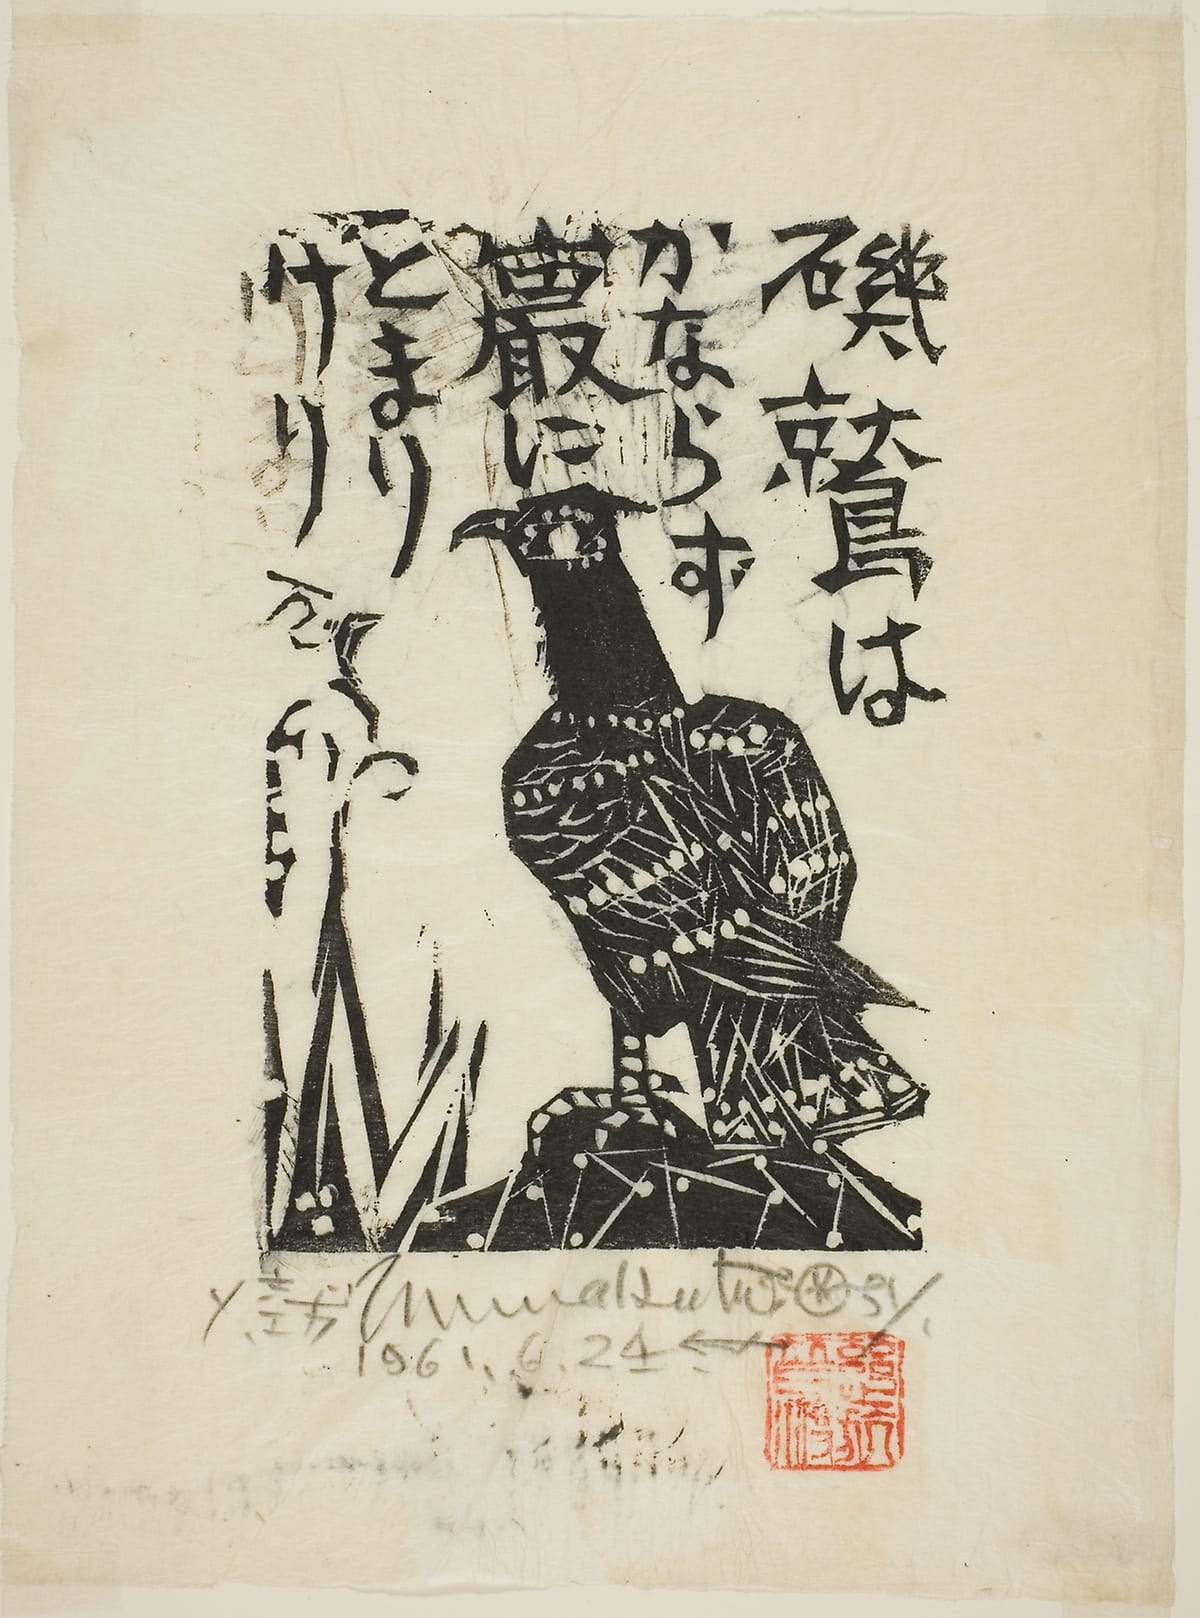 磯鷲は
かならず
巖に
とまり
けり
Munakata
1961. 6. 24